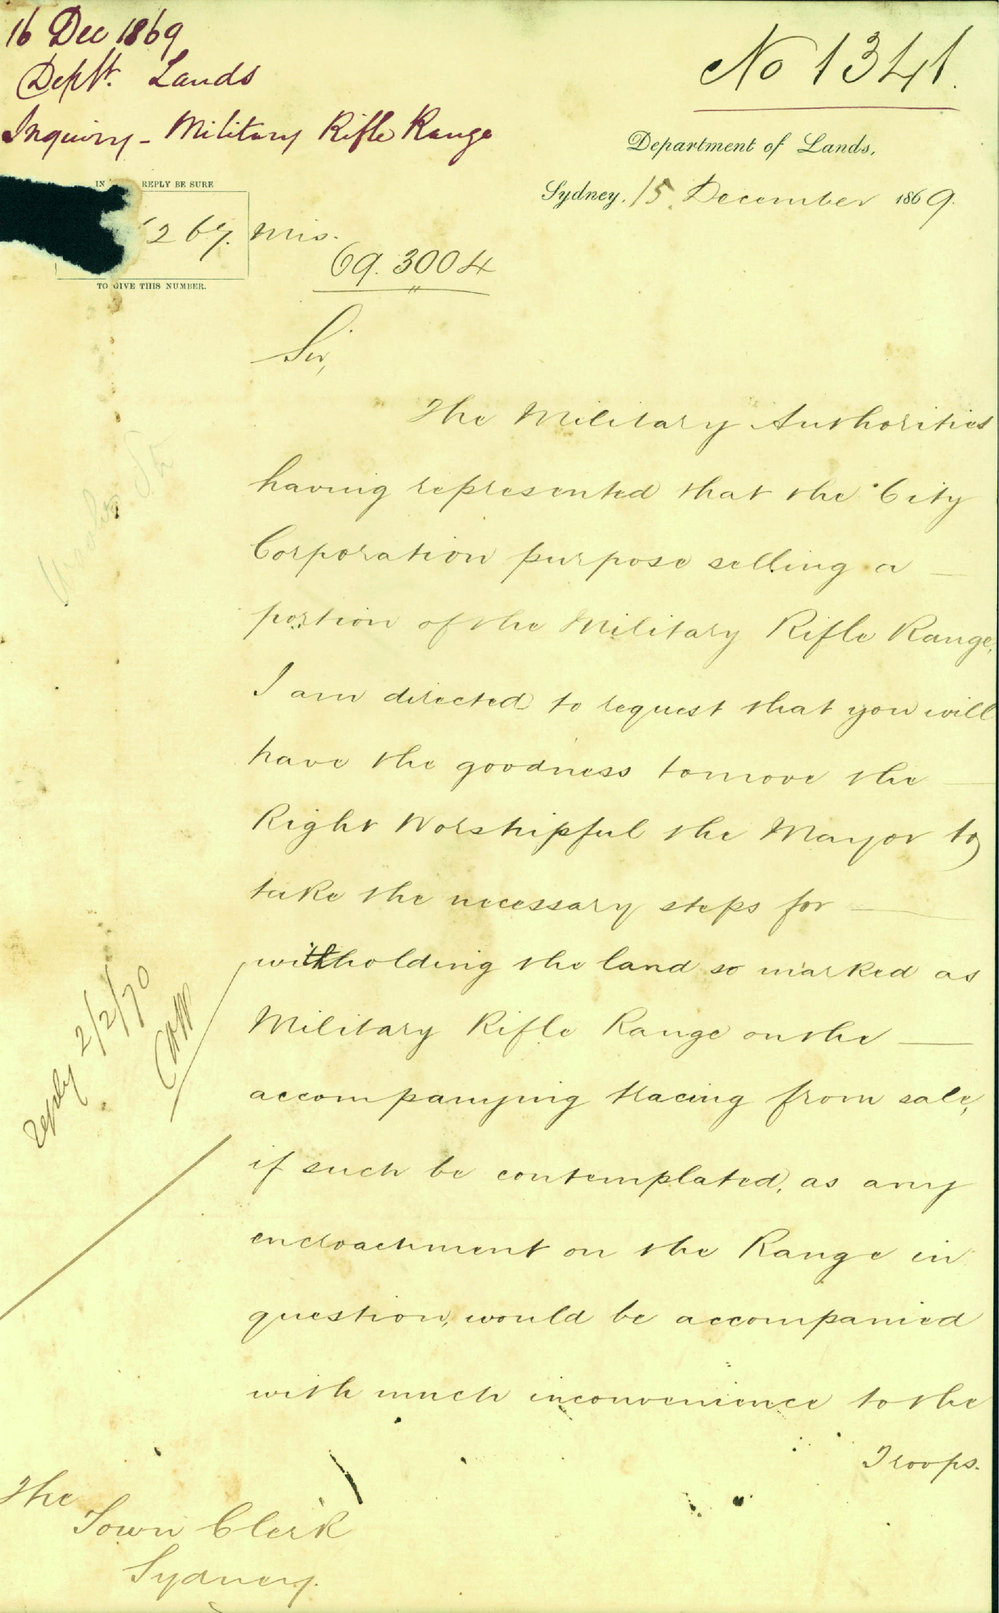 16 Dec 1869
Deptt. Lands
Inquiry - Military Rifle Range
No 1341.
Department of Lands,
Sydney, 15 December 1869.
IN REPLY BE SURE
267. Mis.
TO GIVE THIS NUMBER.
69.3004
Sir,
The Military Authorities
having represented that the City
Corporation purpose selling a
portion of the Military Rifle Range,
I am directed to request that you will
have the goodness to move the
Right Worshipful the Mayor to
take the necessary steps for
withholding the land so marked as
Military Rifle Range on the
accompanying tracing from sale,
if such be contemplated, as any
encroachment on the Range in
question, would be accompanied
with much inconvenience to the
Troops.
reply 2/2/70
The
Town Clerk
Sydney.